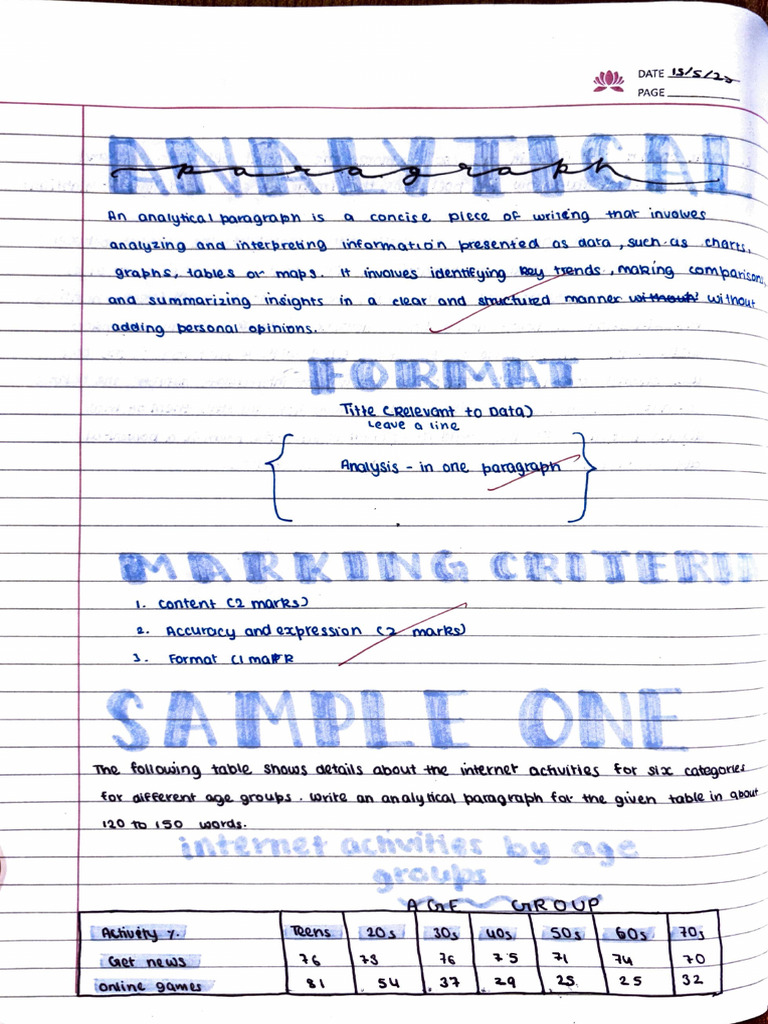 DATE 13/5/25
PAGE
ANALYTICAL
paragraph
An analytical paragraph is a concise piece of writing that involves
analyzing and interpreting information presented as data, such as charts,
graphs, tables or maps. It involves identifying key trends, making comparisons,
and summarizing insights in a clear and structured manner without without
adding personal opinions.
FORMAT
Title (Relevant to Data)
Leave a line
Analysis - in one paragraph
MARKING CRITERI
1. Content (2 marks)
2. Accuracy and expression (2 marks)
3. Format (1 mark
SAMPLE ONE
The following table shows details about the internet activities for six categories
for different age groups. Write an analytical paragraph for the given table in about
120 to 150 words.
internet activities by age
groups
AGE GROUP
Activity %. Teens 20s 30s 40s 50s 60s 70s
Get news 76 73 76 75 71 74 70
online games 81 54 37 29 25 25 32